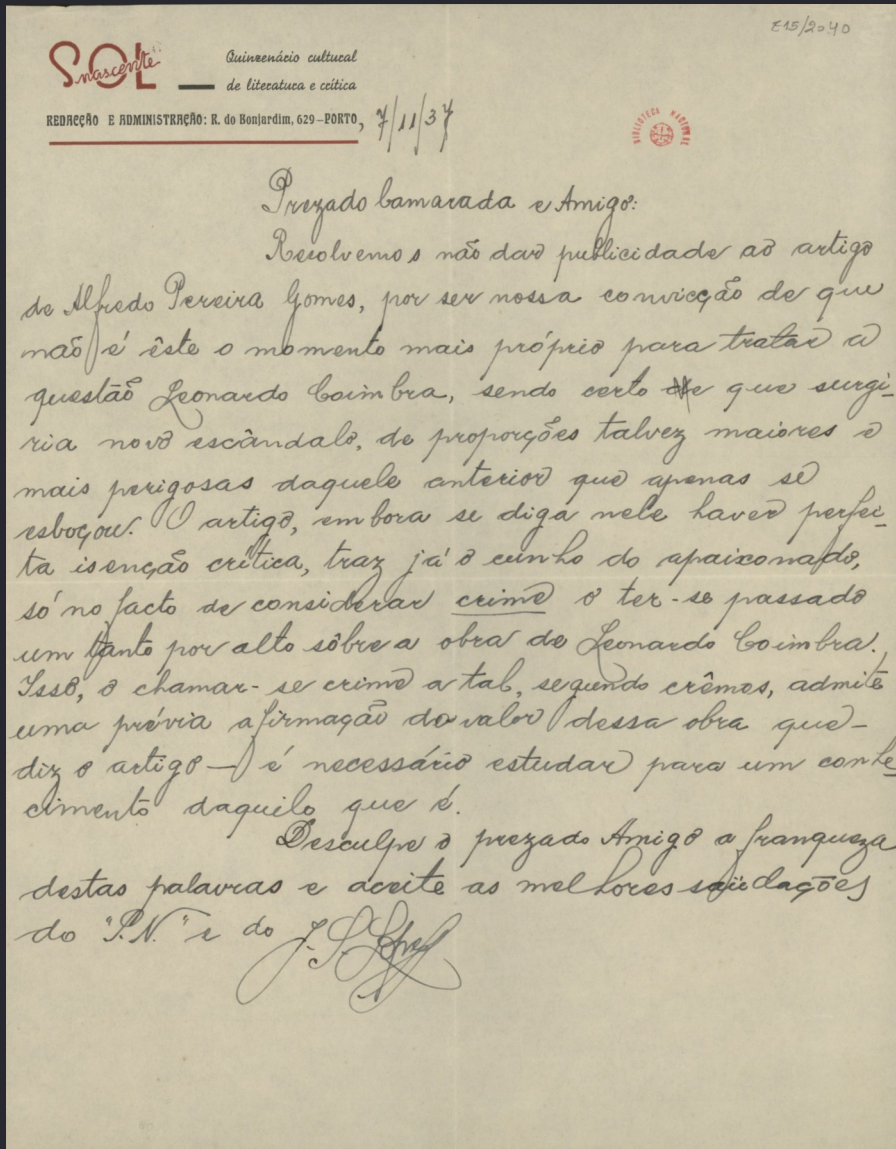 E15/2040
SOL nascente
Quinzenário cultural
de literatura e crítica
REDACÇÃO E ADMINISTRAÇÃO: R. do Bonjardim, 629-PORTO, 7/11/37
BIBLIOTECA NACIONAL
Prezado Camarada e Amigo:
Resolvemos não dar publicidade ao artigo
de Alfredo Pereira Gomes, por ser nossa convicção de que
não é êste o momento mais próprio para tratar a
questão Leonardo Coimbra, sendo certo que surgi-
ria novo escândalo, de proporções talvez maiores e
mais perigosas daquele anterior que apenas se
esboçou. O artigo, embora se diga nele haver perfei-
ta isenção crítica, traz já o cunho do apaixonado,
só no facto de considerar crime o ter-se passado
um tanto por alto sôbre a obra de Leonardo Coimbra.
Isso, o chamar-se crime a tal, segundo crêmos, admite
uma prévia afirmação do valor dessa obra que-
diz o artigo — é necessário estudar para um conhe
cimento daquilo que é.
Desculpe o prezado Amigo a franqueza
destas palavras e aceite as melhores saüdações
do "S.N." e do J. S.